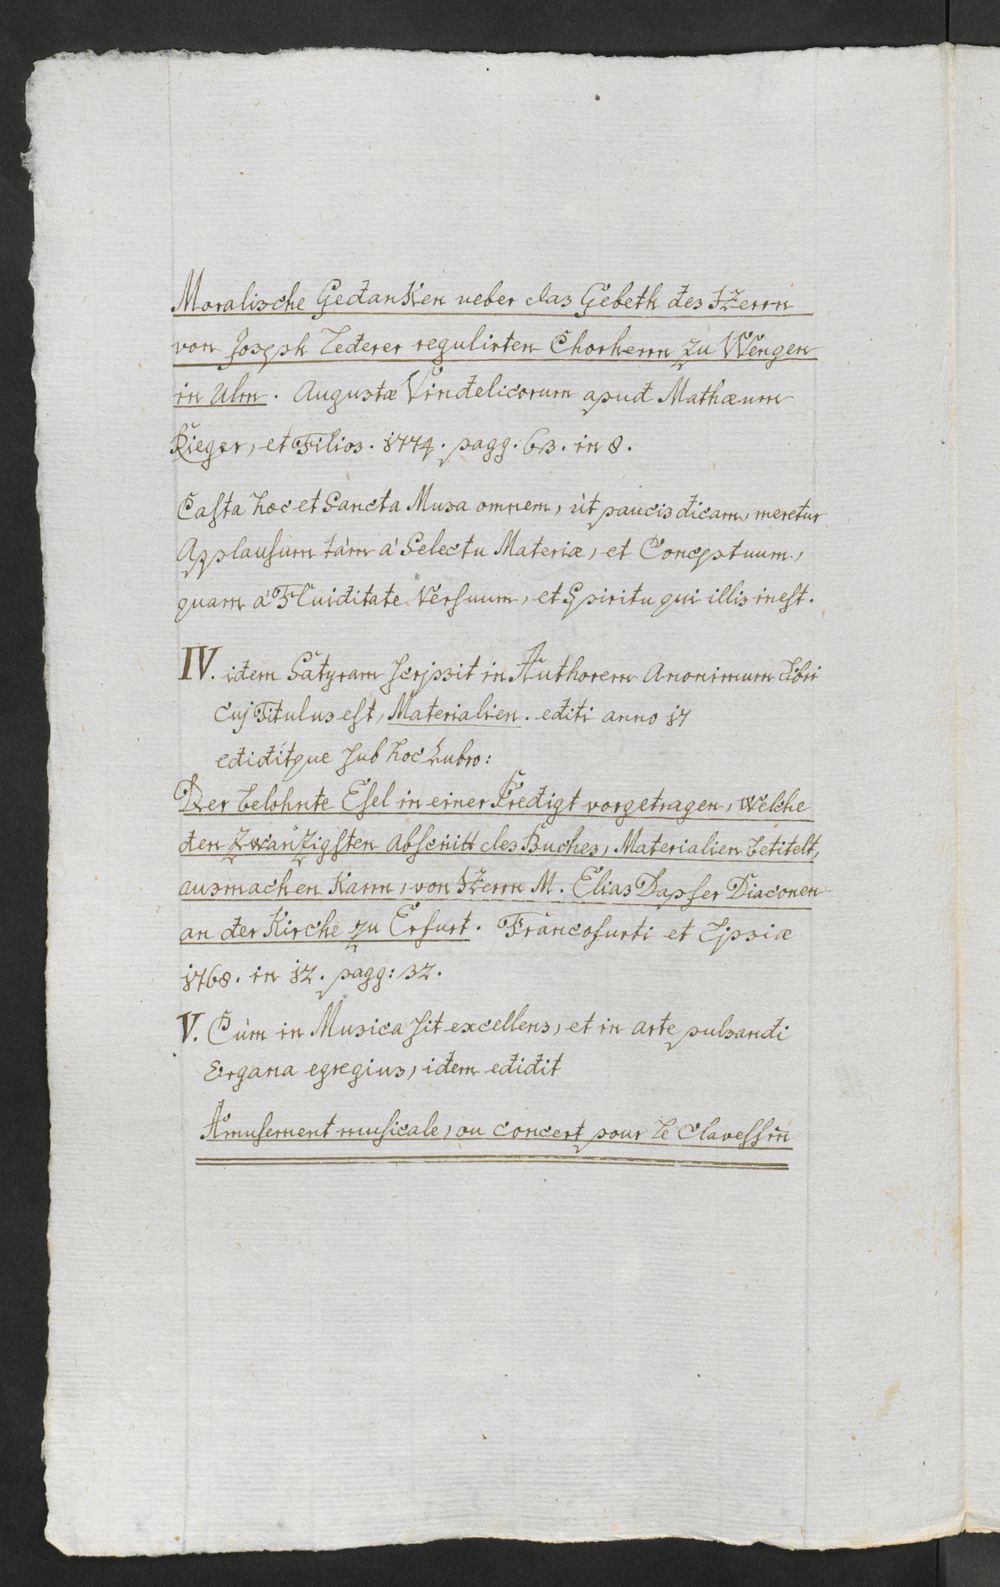 Moralische Gedanken ueber das Gebeth des Herrn
von Joseph Lederer regulirten Chorherrn zu Wengen
in Ulm. Augustæ Vindelicorum apud Mathæum
Rieger, et Filios. 1774. pagg. 63. in 8.
Casta hæc et Sancta Musa omnem, ùt paucis dicam, meretur
Applausum tàm à Selectu Materiæ, et Conceptuum,
quam à Fluiditate Versuum, et Spiritu qui illis inest.
IV. idem Satyram scripsit in Authorem Anonimum Libri
cuj Titulus est, Materialien. editi anno 17
ediditque sub hoc Lubro:
Der belohnte Esel in einer Predigt vorgetragen, welche
den zwanzigsten Abscnitt des Buches, Materialien betitelt,
ausmachen kann, von Herrn M. Elias Dapfer Diaconen
an der Kirche zu Erfurt. Francofurti et Lipsiæ
1768. in 12. pagg: 32.
V. Cùm in Musica sit excellens, et in arte pulsandi
Organa egregius, idem edidit
Amusement musicale, ou concert pour le Clavessin